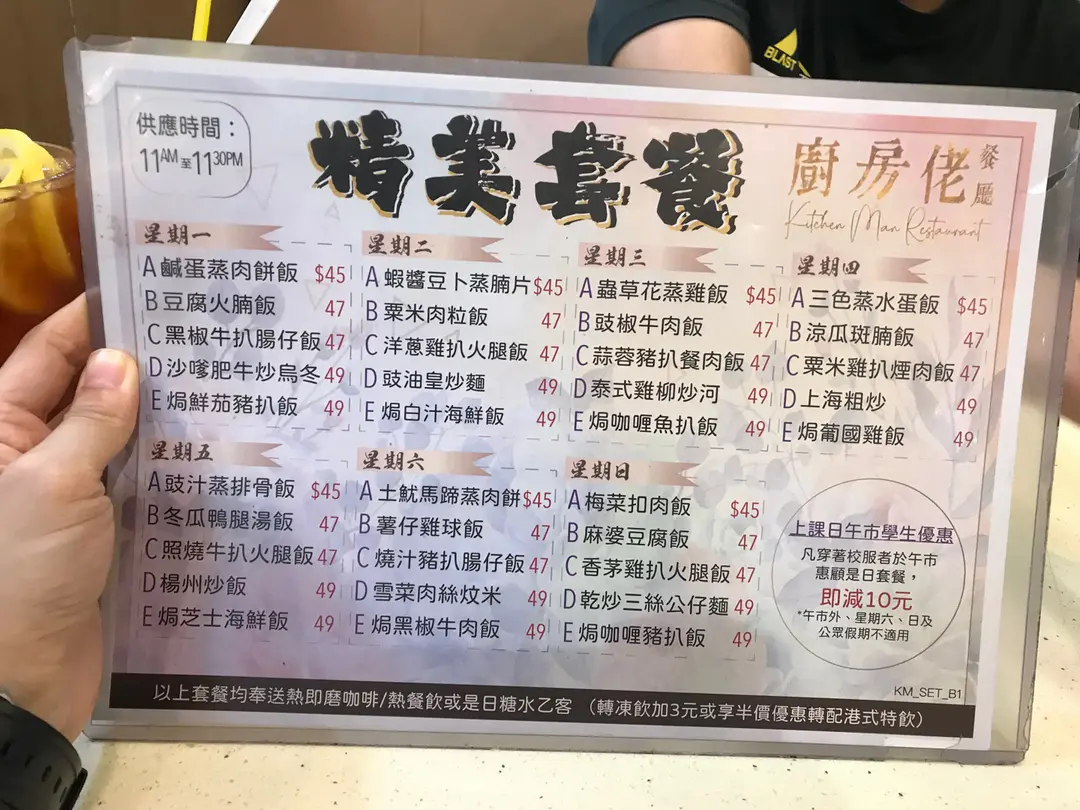 供應時間：
11AM 至 1130PM
精美套餐
廚房佬餐廳
Kitchen Man Restaurant
星期一
A 鹹蛋蒸肉餅飯 $45
B 豆腐火腩飯 47
C 黑椒牛扒腸仔飯 47
D 沙嗲肥牛炒烏冬 49
E 焗鮮茄豬扒飯 49
星期二
A 蝦醬豆卜蒸腩片 $45
B 粟米肉粒飯 47
C 洋蔥雞扒火腿飯 47
D 豉油皇炒麵 49
E 焗白汁海鮮飯 49
星期三
A 蟲草花蒸雞飯 $45
B 豉椒牛肉飯 47
C 蒜蓉豬扒餐肉飯 47
D 泰式雞柳炒河 49
E 焗咖喱魚扒飯 49
星期四
A 三色蒸水蛋飯 $45
B 涼瓜斑腩飯 47
C 粟米雞扒煙肉飯 47
D 上海粗炒 49
E 焗葡國雞飯 49
星期五
A 豉汁蒸排骨飯 $45
B 冬瓜鴨腿湯飯 47
C 照燒牛扒火腿飯 47
D 楊州炒飯 49
E 焗芝士海鮮飯 49
星期六
A 土魷馬蹄蒸肉餅 $45
B 薯仔雞球飯 47
C 燒汁豬扒腸仔飯 47
D 雪菜肉絲炆米 49
E 焗黑椒牛肉飯 49
星期日
A 梅菜扣肉飯 $45
B 麻婆豆腐飯 47
C 香茅雞扒火腿飯 47
D 乾炒三絲公仔麵 49
E 焗咖喱豬扒飯 49
上課日午市學生優惠
凡穿著校服者於午市
惠顧是日套餐，
即減10元
*午市外、星期六、日及
公眾假期不適用
KM_SET_B1
以上套餐均奉送熱即磨咖啡/熱餐飲或是日糖水乙客 （轉凍飲加3元或享半價優惠轉配港式特飲）
BLAST